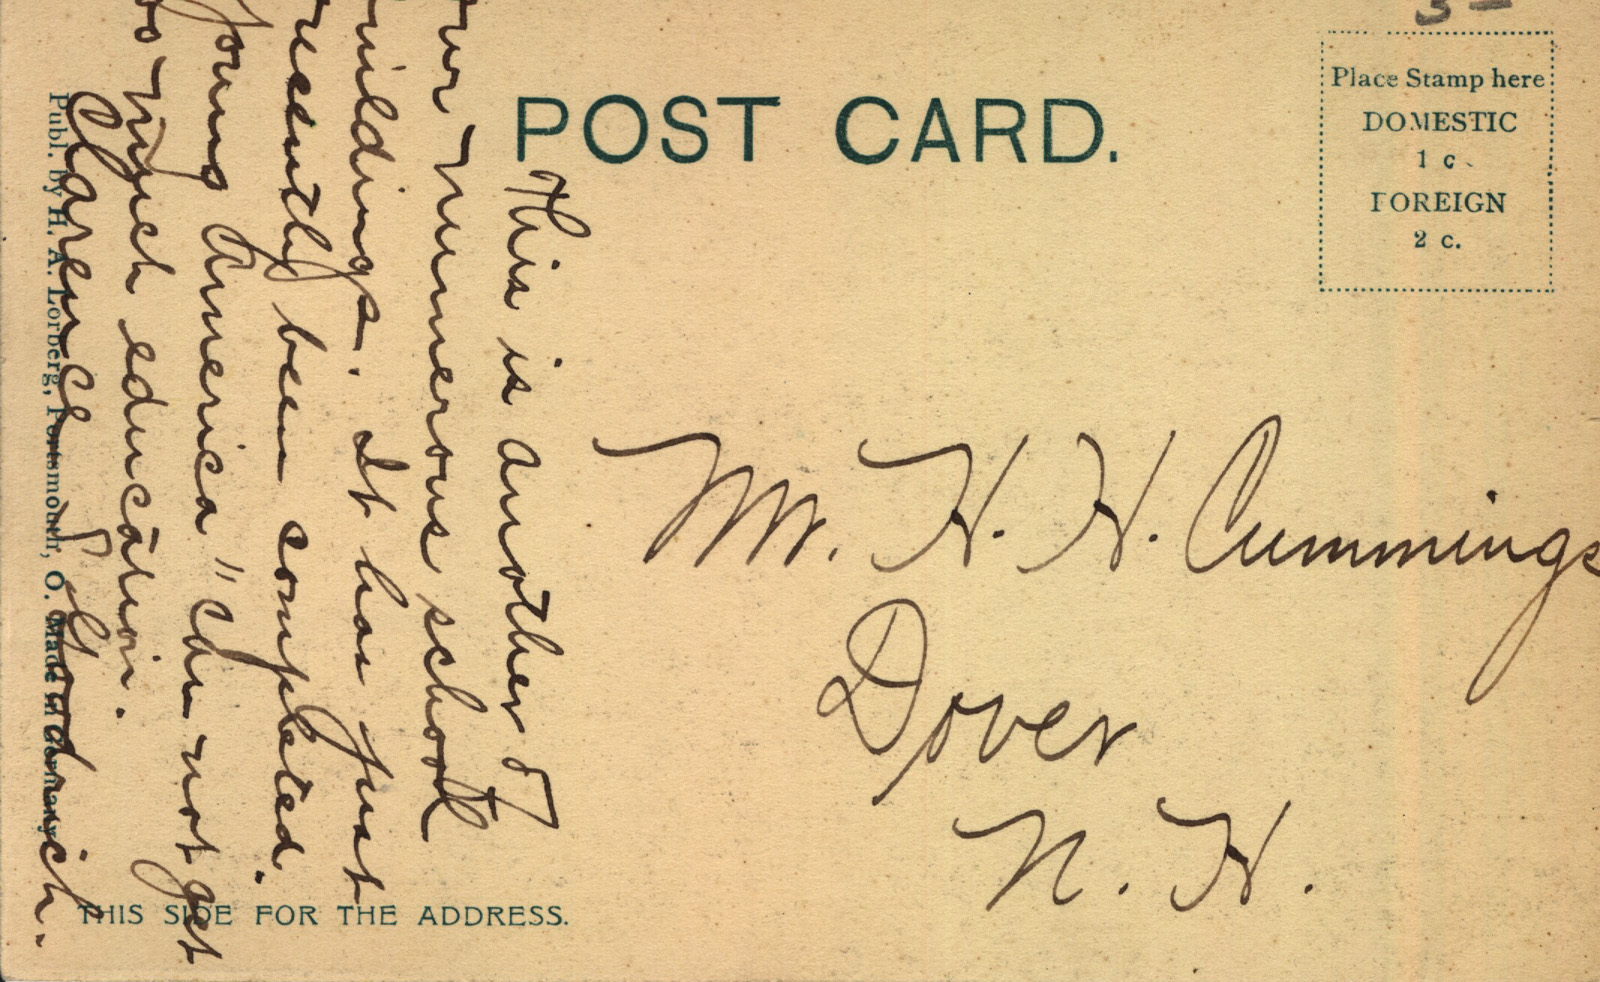 POST CARD.
Place Stamp here
DOMESTIC
1 c.
FOREIGN
2 c.
This is another of
our numerous school
buildings. It has just
recently been completed.
"Young America" can not get
too much education.
Clarence F. Goodrich.
Mr. H. H. Cummings
Dover
N. H.
Publ. by H. A. Lorberg, Portsmouth, O. Made in Germany
THIS SIDE FOR THE ADDRESS.